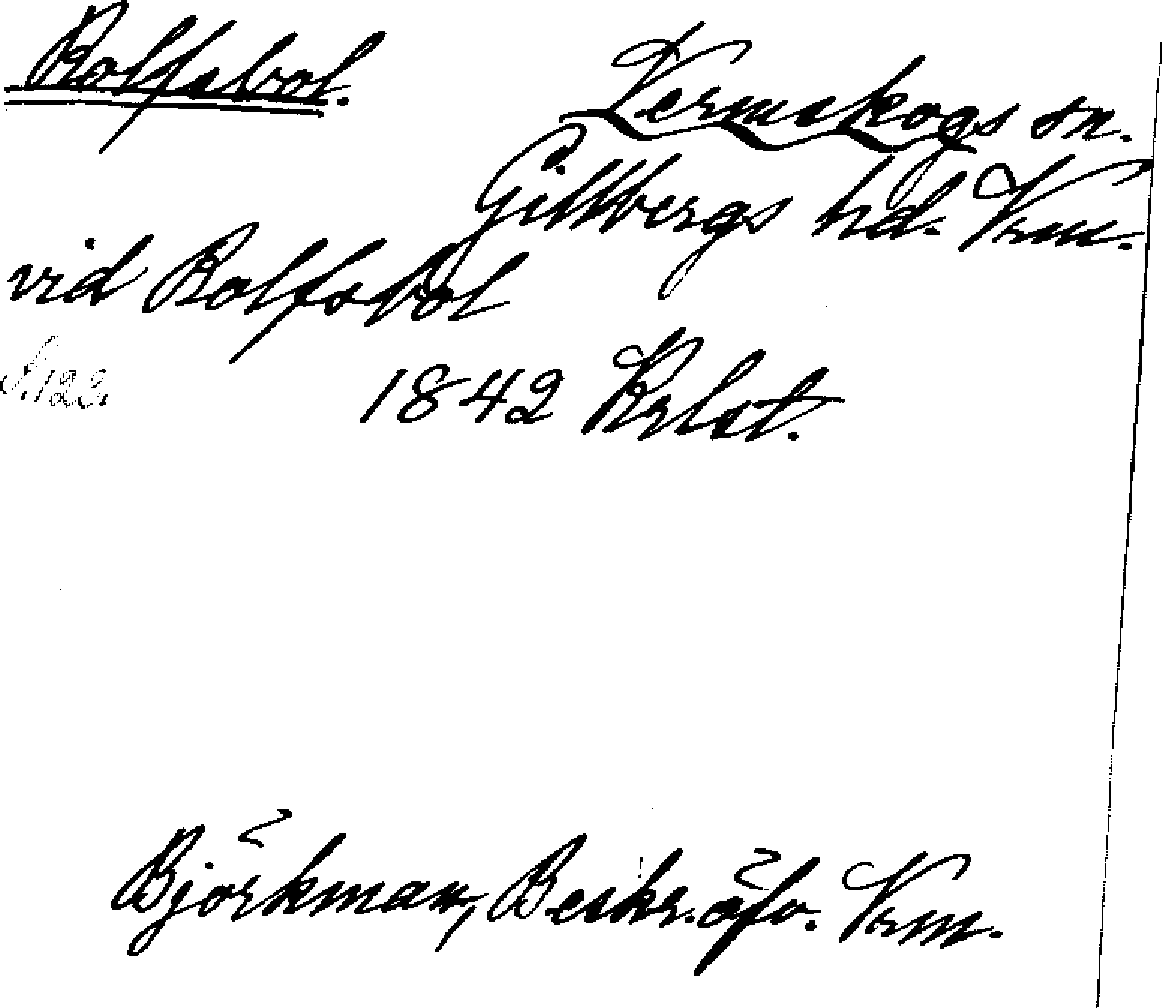 Rolfsbol.
Vermskogs sn.
Gillbergs hd. Vrm.
vid Rolfsbol
S. 122.
1842 Krlst.
Björkman, Beskr. öfv. Vrm.